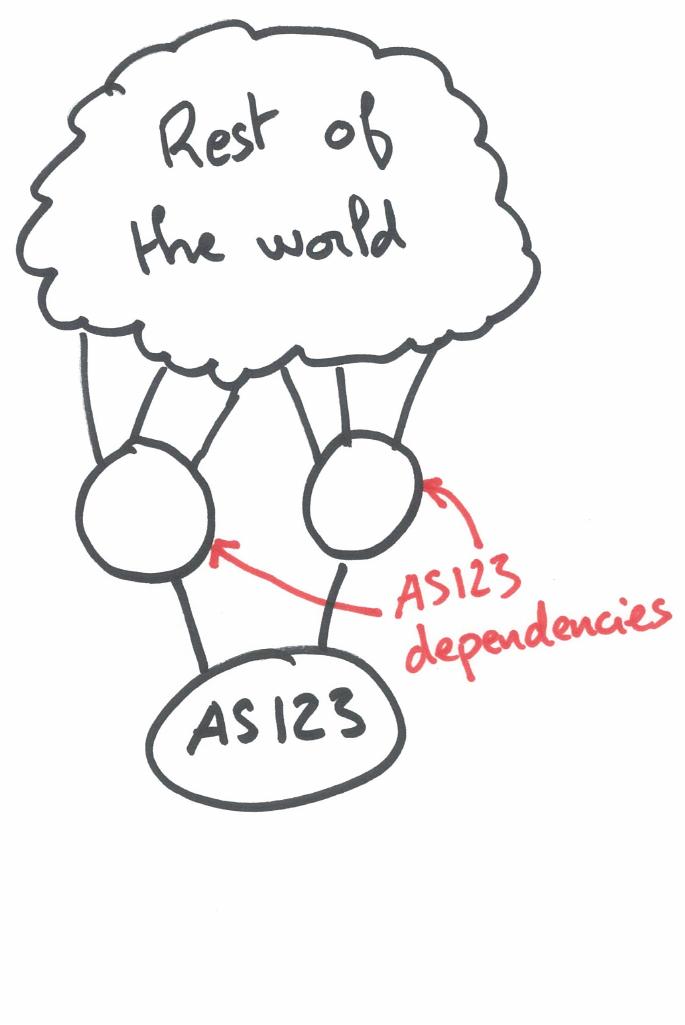 Rest of
the world
AS123
dependencies
AS123